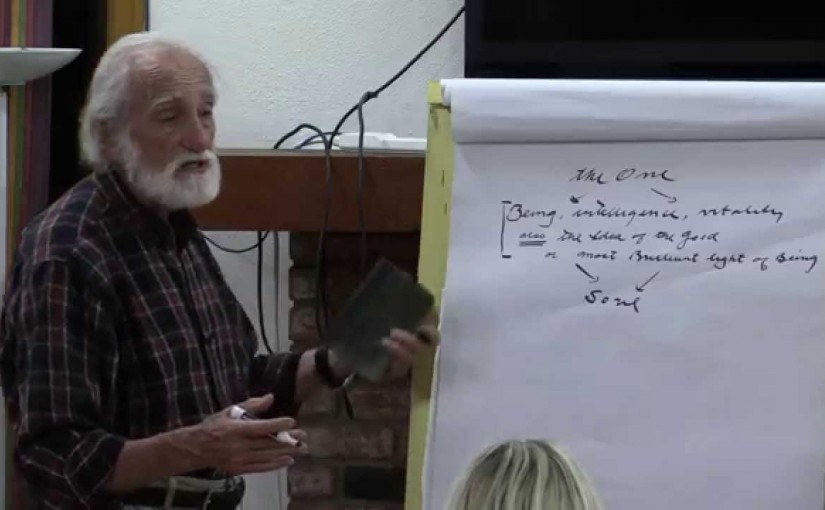 the One
Being, intelligence, vitality
also the Idea of the Good
or most Brilliant light of Being
Soul